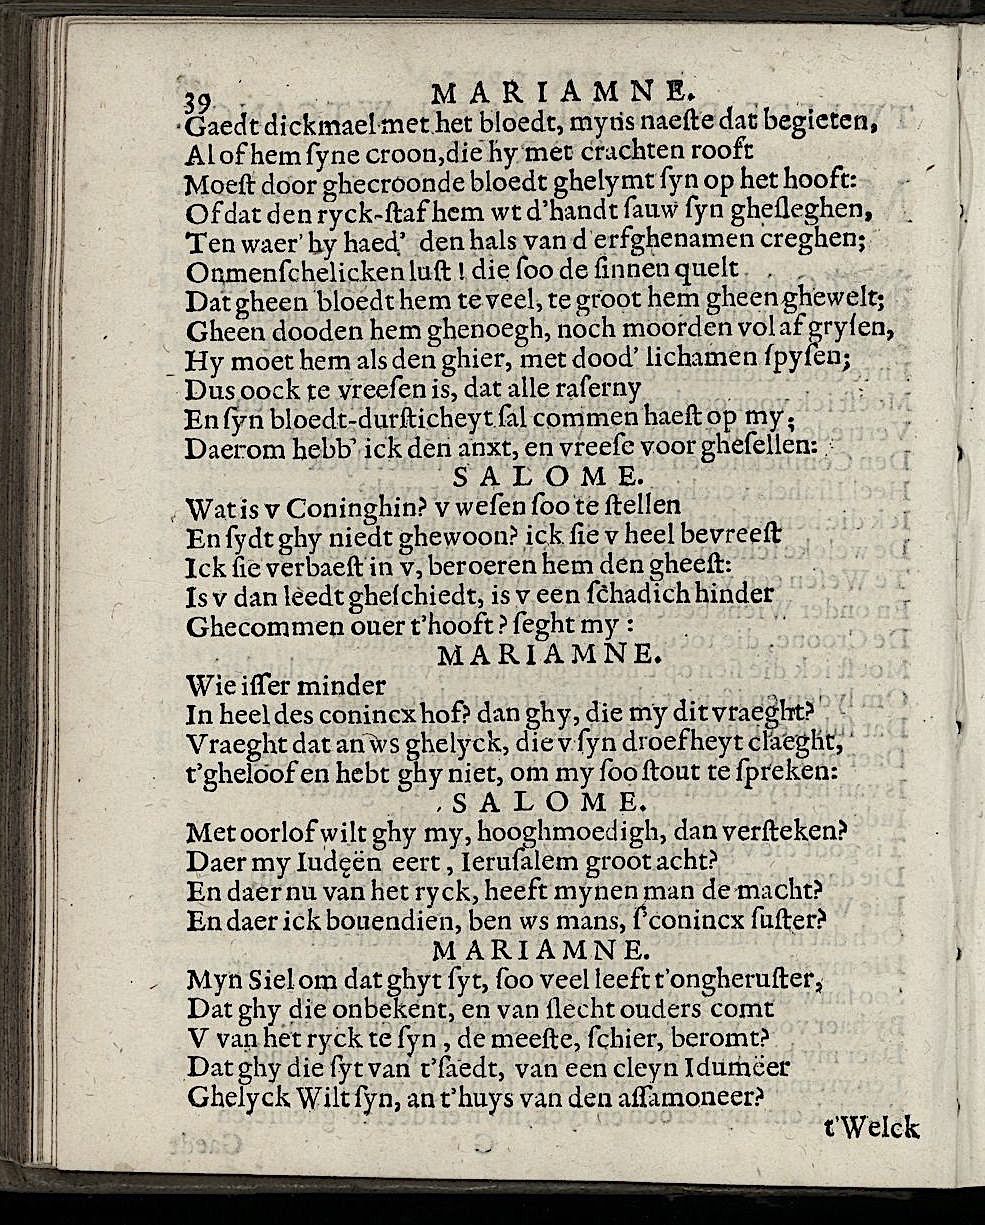 39 MARIAMNE.
Gaedt dickmael met het bloedt, myns naeſte dat begieten,
Al of hem ſyne croon, die hy met crachten rooft
Moeſt door ghecroonde bloedt ghelymt ſyn op het hooft:
Of dat den ryck-ſtaf hem wt d'handt ſauw ſyn gheſleghen,
Ten waer' hy haed' den hals van d'erfghenamen creghen;
Onmenſchelicken luſt! die ſoo de ſinnen quelt
Dat gheen bloedt hem te veel, te groot hem gheen ghewelt;
Gheen dooden hem ghenoegh, noch moorden vol afgryſen,
Hy moet hem als den ghier, met dood' lichamen ſpyſen;
Dus oock te vreeſen is, dat alle raſerny
En ſyn bloedt-durſticheyt ſal commen haeſt op my;
Daerom hebb' ick den anxt, en vreeſe voor gheſellen:
SALOME.
Wat is v Coninghin? v weſen ſoo te ſtellen
En ſydt ghy niedt ghewoon? ick ſie v heel bevreeſt
Ick ſie verbaeſt in v, beroeren hem den gheeſt:
Is v dan leedt gheſchiedt, is v een ſchadich hinder
Ghecommen ouer t'hooft? ſeght my:
MARIAMNE.
Wie iſſer minder
In heel des conincx hof? dan ghy, die my dit vraeght?
Vraeght dat an ws ghelyck, die v ſyn droefheyt claeght,
t'gheloof en hebt ghy niet, om my ſoo ſtout te ſpreken:
SALOME.
Met oorlof wilt ghy my, hooghmoedigh, dan verſteken?
Daer my Iudęën eert, Ieruſalem groot acht?
En daer nu van het ryck, heeft mynen man de macht?
En daer ick bouendien, ben ws mans, ſ'conincx ſuſter?
MARIAMNE.
Myn Siel om dat ghyt ſyt, ſoo veel leeft t'ongheruſter,
Dat ghy die onbekent, en van ſlecht ouders comt
V van het ryck te ſyn, de meeſte, ſchier, beromt?
Dat ghy die ſyt van t'ſaedt, van een cleyn Idumëer
Ghelyck Wilt ſyn, an t'huys van den aſſamoneer?
t'Welck